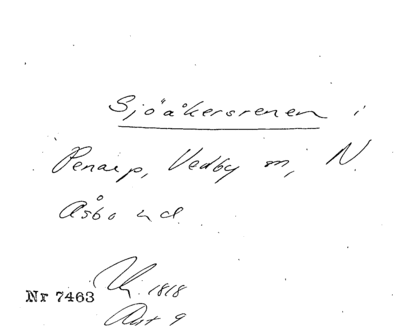 Sjöåkersrenen i
Penarp, Vedby m, N.
Åsbo hd
Nr 7463
1818
Akt 9